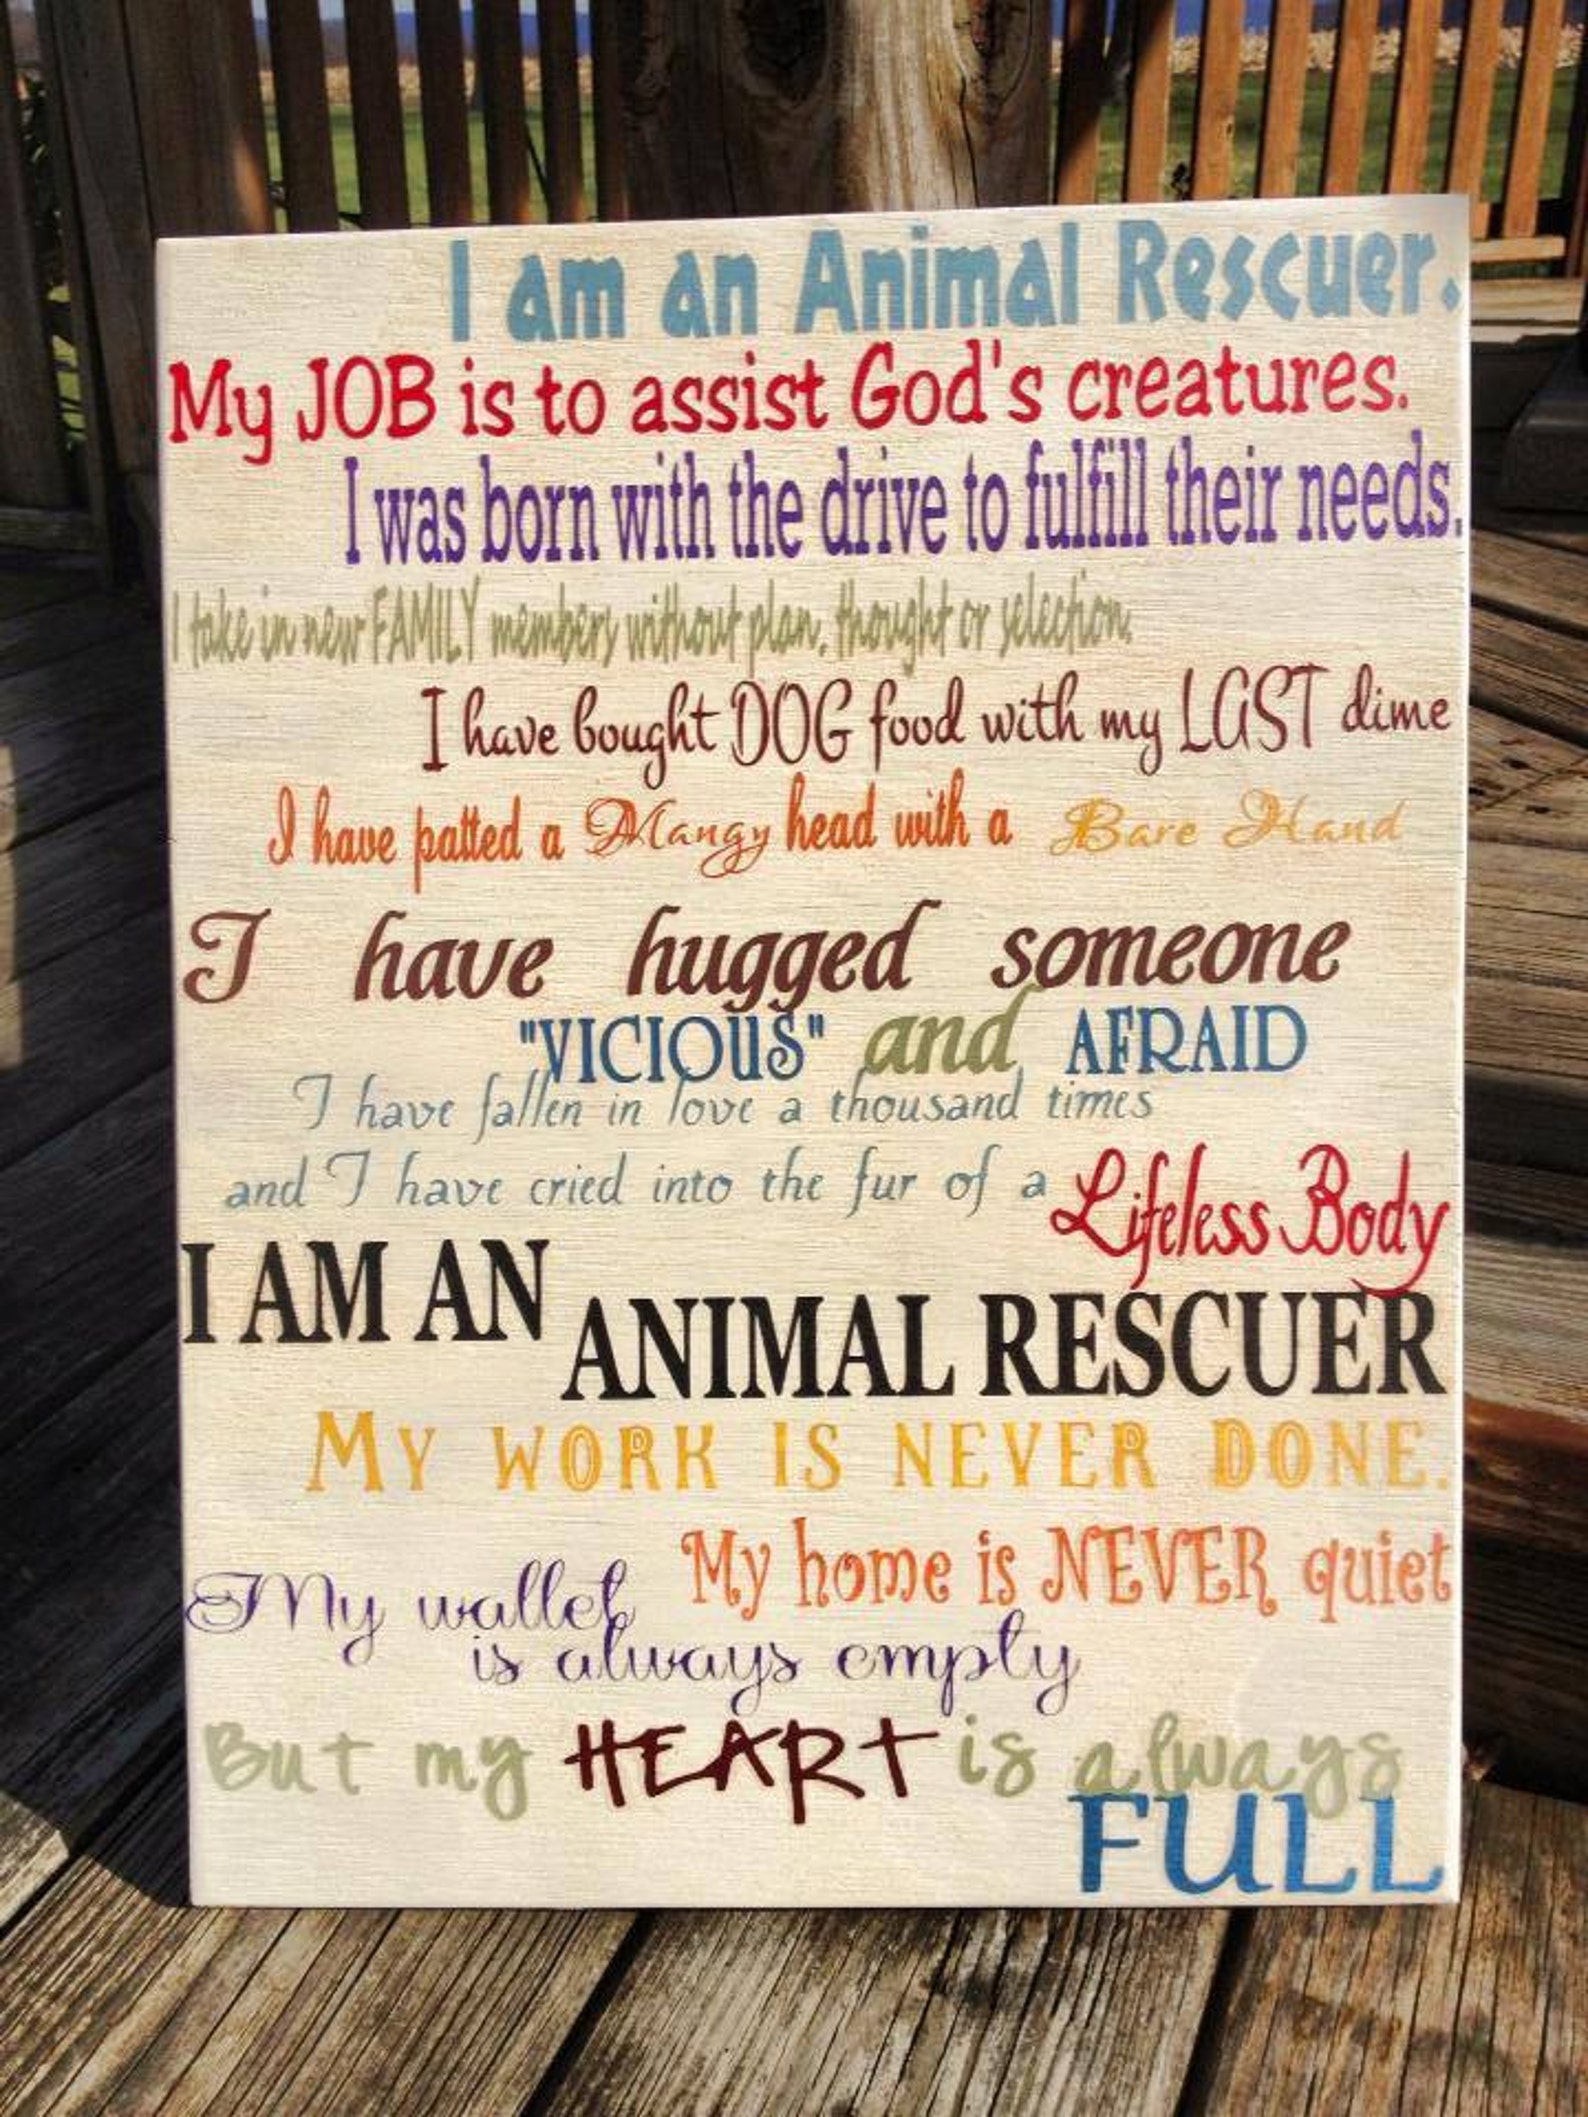 I am an Animal Rescuer.
My JOB is to assist God's creatures.
I was born with the drive to fulfill their needs.
I take in new FAMILY members without plan, thought or selection.
I have bought DOG food with my LAST dime
I have patted a Mangy head with a Bare Hand
I have hugged someone
"VICIOUS" and AFRAID
I have fallen in love a thousand times
and I have cried into the fur of a Lifeless Body
I AM AN ANIMAL RESCUER
MY WORK IS NEVER DONE.
My home is NEVER quiet
My wallet
is always empty
But my HEART is always
FULL